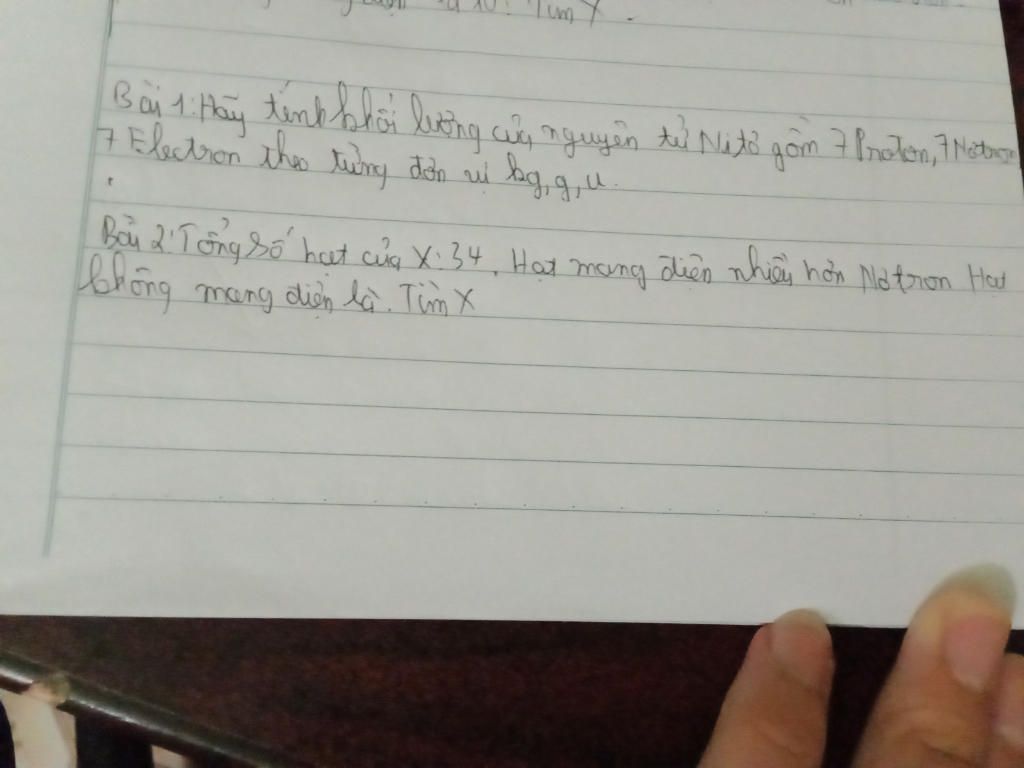 Tìm X.
Bài 1: Hãy tính khối lượng của nguyên tử Nitơ gồm 7 Proton, 7 Nơtron
7 Electron theo từng đơn vị kg, g, u.
Bài 2: Tổng số hạt của X: 34. Hạt mang điện nhiều hơn Nơtron Hạt
không mang điện là. Tìm X